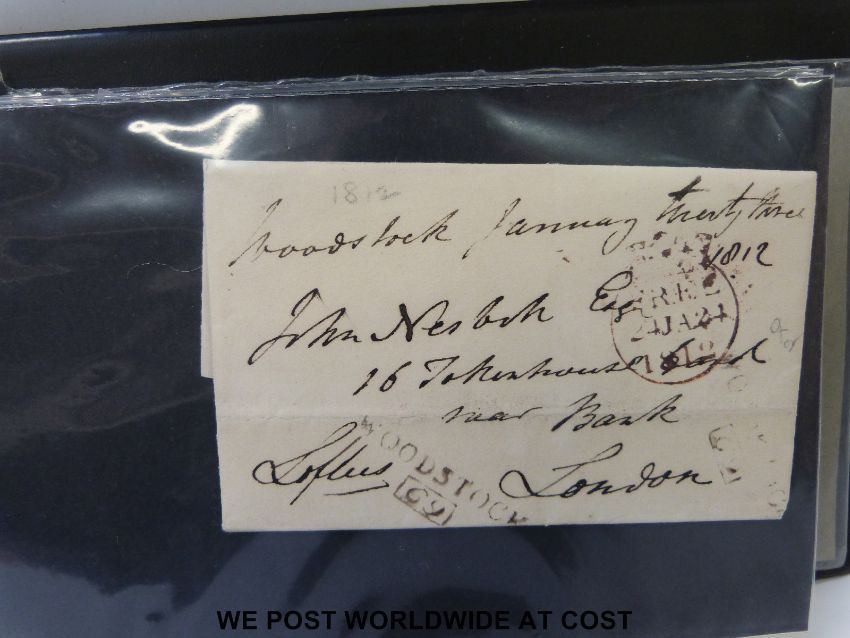 1812
Woodstock January twenty three
1812
John Nesbitt Esq
FREE
24JA24
1812
16 Tokenhouse Yard
near Bank
Loftus London
WOODSTOCK
69
WE POST WORLDWIDE AT COST